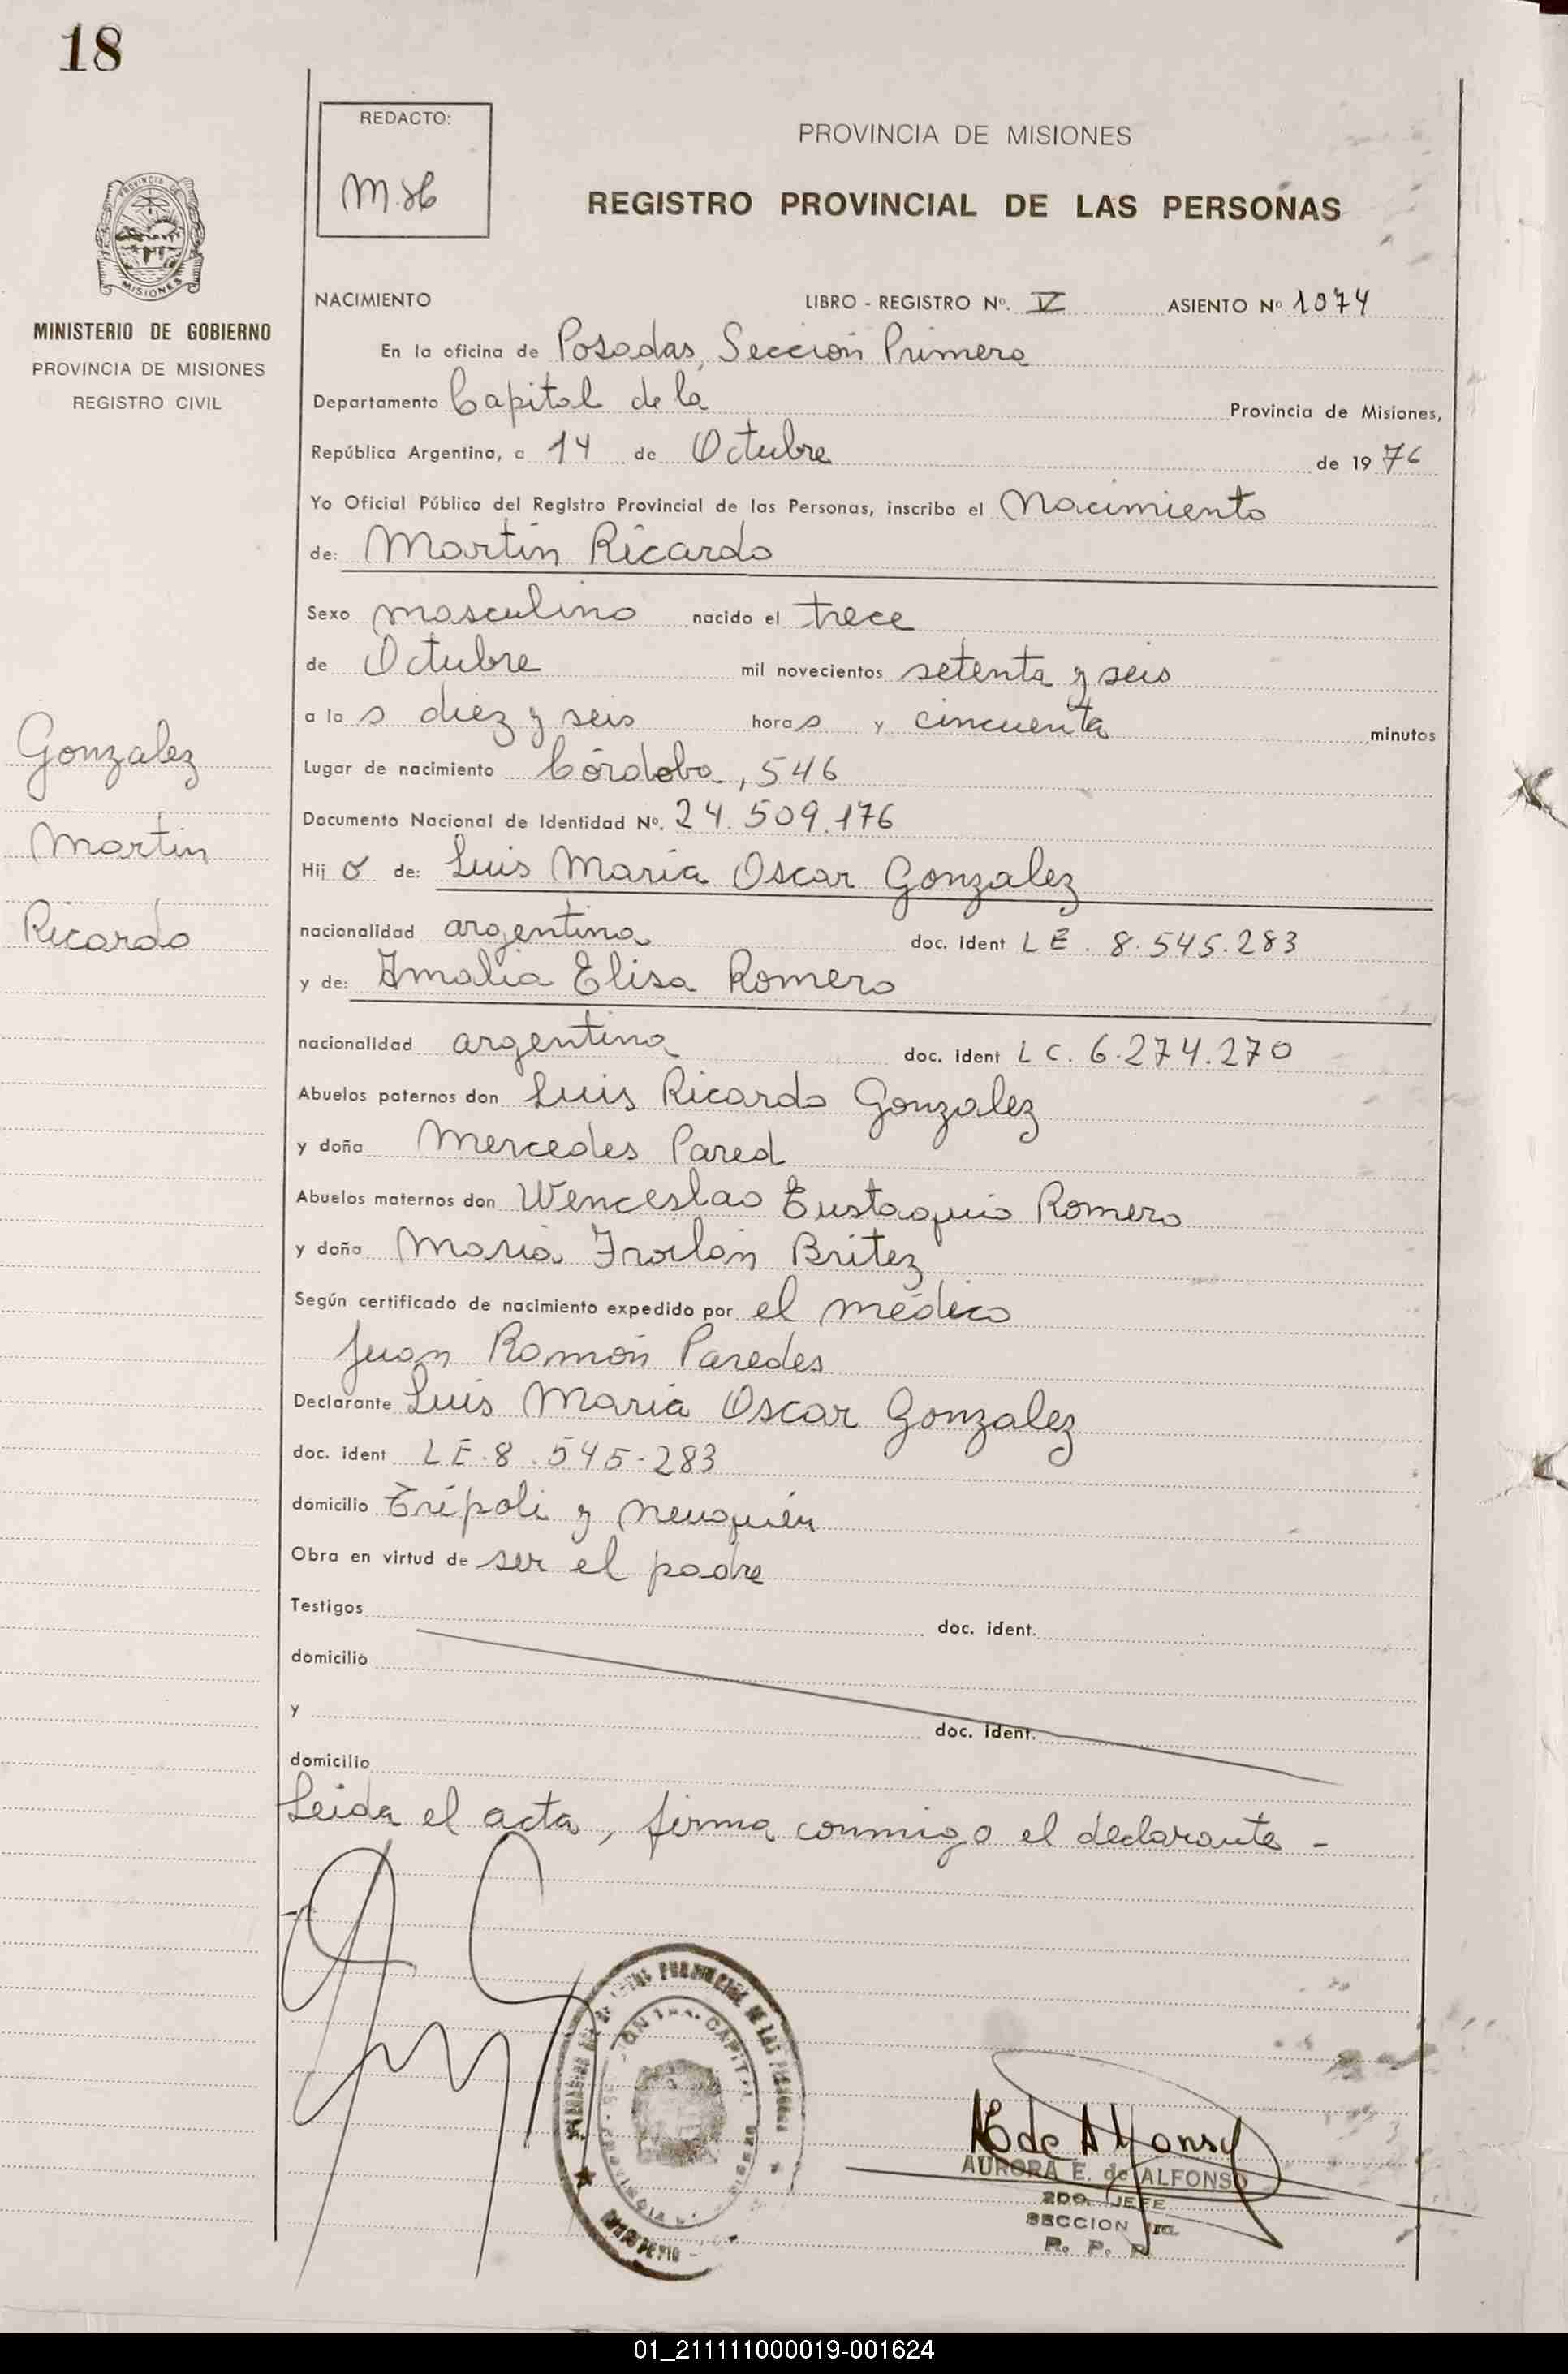 18
REDACTO:
M.H
PROVINCIA DE MISIONES
REGISTRO PROVINCIAL DE LAS PERSONAS
PROVINCIA DE
MISIONES
MINISTERIO DE GOBIERNO
PROVINCIA DE MISIONES
REGISTRO CIVIL
NACIMIENTO LIBRO - REGISTRO Nº. V ASIENTO Nº 1074
En la oficina de Posadas, Sección Primera
Departamento Capital de la Provincia de Misiones,
República Argentina, a 14 de Octubre de 1976
Yo Oficial Público del Registro Provincial de las Personas, inscribo el Nacimiento
de: Martín Ricardo
Sexo masculino nacido el trece
de Octubre mil novecientos setenta y seis
a las diez y seis horas y cincuenta minutos
Lugar de nacimiento Córdoba, 546
Documento Nacional de Identidad Nº. 24.509.176
Hijo de: Luis María Oscar Gonzalez
nacionalidad argentina doc. ident LE. 8.545.283
y de: Amalia Elisa Romero
nacionalidad argentina doc. ident LC. 6.274.270
Abuelos paternos don Luis Ricardo Gonzalez
y doña Mercedes Pared
Abuelos maternos don Wenceslao Eustaquio Romero
y doña María Froilán Britez
Según certificado de nacimiento expedido por el médico
Juan Ramón Paredes
Declarante Luis María Oscar Gonzalez
doc. ident LE.8.545-283
domicilio Trípoli y Neuquién
Obra en virtud de ser el padre
Testigos doc. ident.
domicilio
y doc. ident.
domicilio
Leida el acta, firma conmigo el declarante -
Gonzalez
Martin
Ricardo
AE de Alfonso
AURORA E. de ALFONSO
2DO. JEFE
SECCION 1ra.
R. P. P.
01_211111000019-001624